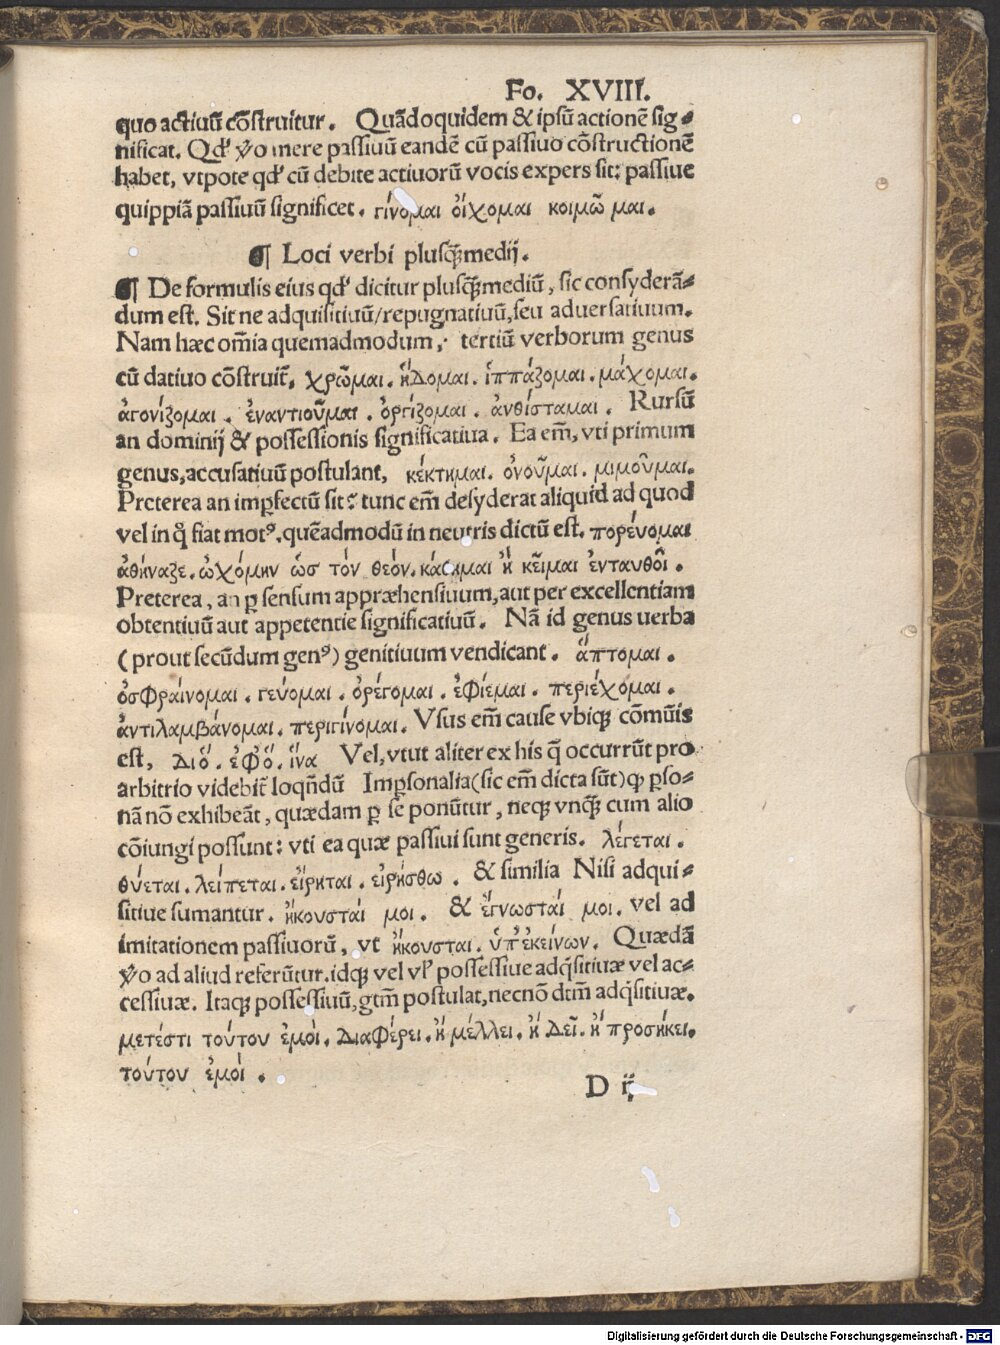 Fo. XVIII.
quo actiuũ cõstruitur. Quãdoquidem & ipsũ actionẽ sig⸗
nificat. Qď v̊o mere passiuũ eandẽ cũ passiuo cõstructionẽ
habet, vtpote qď cũ debite actiuorũ vocis expers sit: passiue
quippiã passiuũ significet. γίνομαι οἴχομαι κοιμῶ μαι.
¶ Loci verbi plusꝗ̃medij.
¶ De formulis eius qď dicitur plusꝗ̃mediũ, sic consyderã⸗
dum est. Sit ne adquisitiuũ/repugnatiuũ, seu aduersatiuum.
Nam hæc om̃ia quemadmodum, tertiũ verborum genus
cũ datiuo cõstruit̃, χρῶμαι. ἥδομαι. ἱππάζομαι. μάχομαι.
ἀγονίζομαι. ἐναντιοῦμαι. ὀργίζομαι. ἀνθίσταμαι. Rursũ
an dominij & possessionis significatiua. Ea em̃, vti primum
genus, accusatiuũ postulant, κέκτημαι. ὀνοῦμαι. μιμοῦμαι.
Preterea an imꝑfectũ sit: tunc em̃ desyderat aliquid ad quod
vel in q̊ fiat motꝰ, quẽadmodũ in neutris dictũ est. πορέυομαι
ἀθήναζε. ὠχόμην ὡσ τὸν θεόν. κάθημαι ἢ κεῖμαι ἐνταυθοῖ.
Preterea, an ꝑ sensum appræhensiuum, aut per excellentiam
obtentiuũ aut appetentie significatiuũ. Nã id genus uerba
(prout secũdum genꝰ) genitiuum vendicant. ἅπτομαι.
ὀσφραίνομαι. γεύομαι. ὀρέγομαι. ἐφίεμαι. περιέχομαι.
ἀντιλαμβάνομαι. περιγίνομαι. Vsus em̃ cause vbiqꝫ cõmũis
est, διὸ. ἐφὅ. ἵνα Vel, vtut aliter ex his q̃ occurrũt pro
arbitrio videbit̃ loqñdũ Imꝑsonalia (sic em̃ dicta sũt) ꝙ ꝑso⸗
nã nõ exhibeãt, quædam ꝑ se ponũtur, neqꝫ vnꝗ̃ cum alio
cõiungi possunt: vti ea quæ passiui sunt generis. λέγεται.
θύεται. λείπεται. εἴρηται. εἰρήσθω. & similia Nisi adqui⸗
sitiue sumantur. ἤκουσταί μοι. & ἔγνωσταί μοι. vel ad
imitationem passiuorũ, vt ἤκουσται. ὑπ᾽ἐκείνων. Quædã
v̊o ad aliud referũtur. idqꝫ vel vľ possessiue adq̃sitiuæ vel ac⸗
cessiuæ. Itaqꝫ possessiuũ, gtm̃ postulat, necnõ dtm̃ adq̃sitiuæ.
μετέστι τούτου ἐμοὶ. διαφέρει. ἢ μέλλει. ἢ δεῖ. ἢ προσήκει.
τούτου ἐμοὶ.
D ij
Digitalisierung gefördert durch die Deutsche Forschungsgemeinschaft - DFG